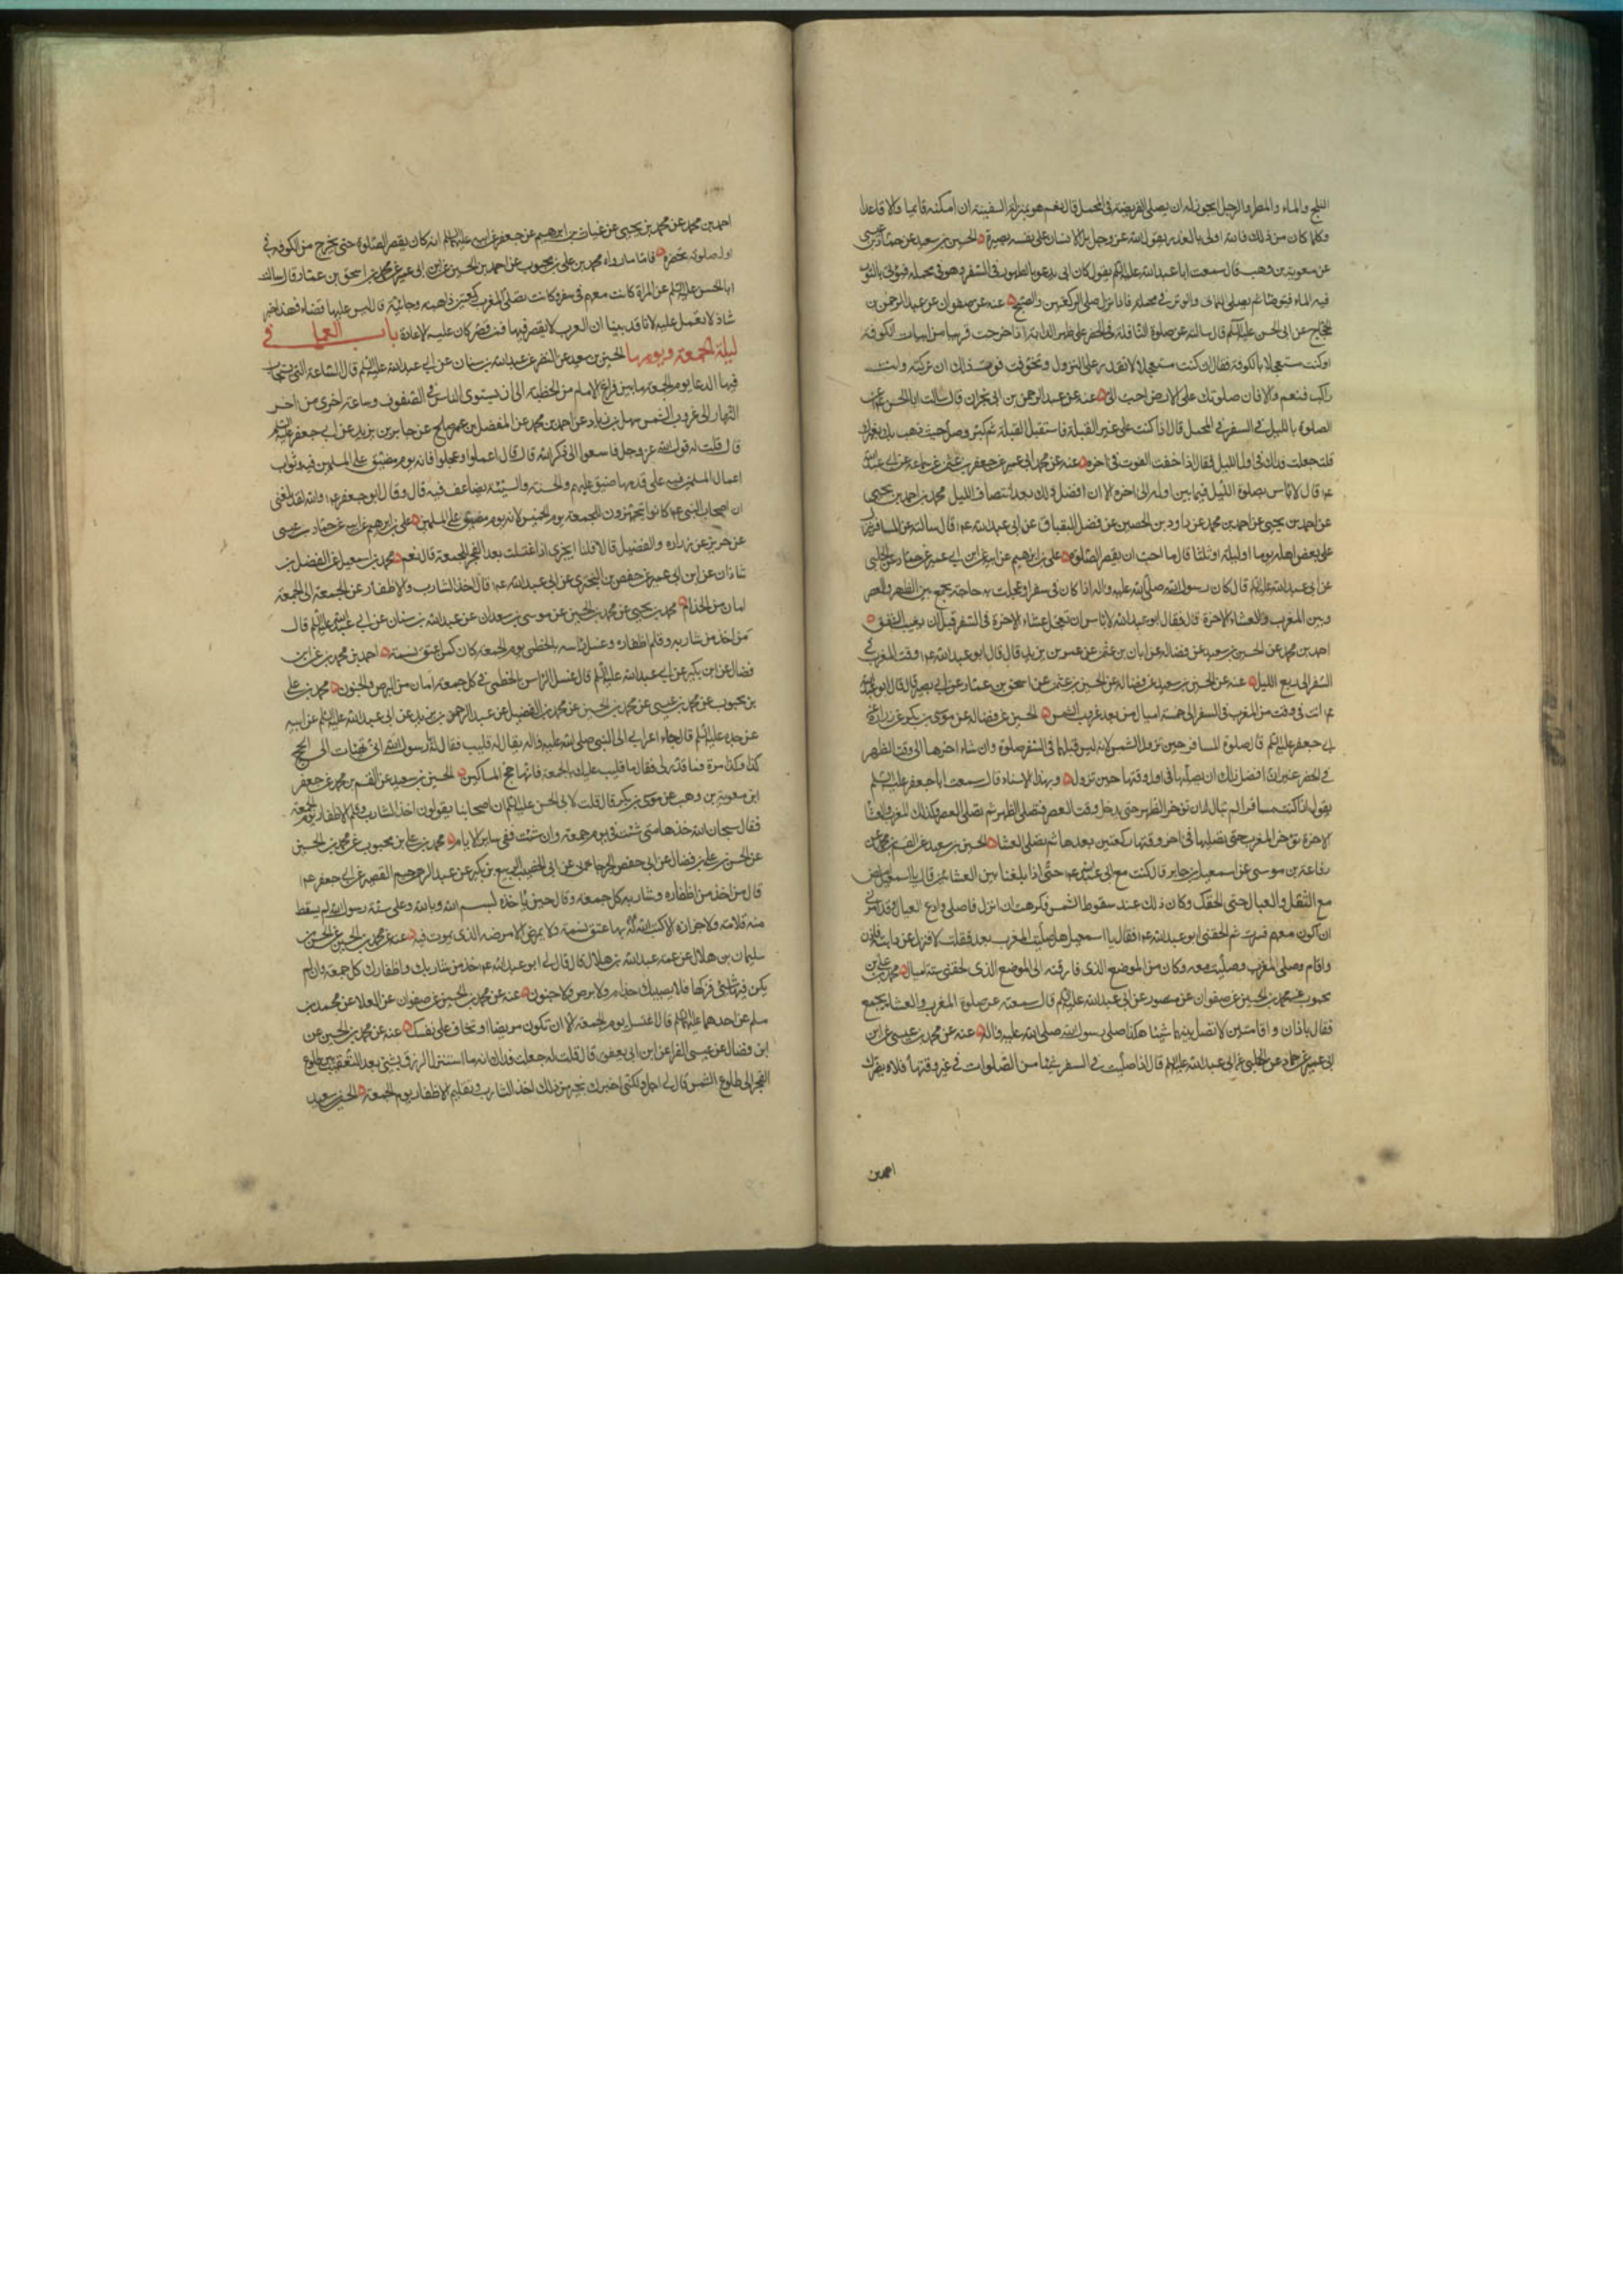 الثلج والماء والمطر والرحل ايجوز له ان يصلى الفريضة فى المحمل قال نعم هو بمنزلة السفينة ان امكنه قائما والا قاعدا
وكلما كان من ذلك فالله اولى بالعذر يقول الله عز وجل بل الانسان على نفسه بصيرة الحسين بن سعيد عن حماد بن عيسى
عن معوية بن وهب قال سمعت ابا عبد الله عليه السلم يقول كان ابى يدعو بالطهور فى السفر وهو فى محمله فيؤتى بالتور
فيه الماء فيتوضا ثم يصلى الثمانى والوتر فى محمله فاذا نزل صلى الركعتين والصبح عنه عن صفوان عن عبد الرحمن بن
الحجاج عن ابى الحسن عليه السلم قال سالته عن صلوة النافلة فى الحضر على ظهر الدابة اذا خرجت قريبا من ابيات الكوفة
او كنت مستعجلا بالكوفة فقال ان كنت مستعجلا لا تقدر على النزول وتخوفت فوت ذلك ان تركته وانت
راكب فنعم والا فان صلوتك على الارض احب الى عنه عن عبد الرحمن بن ابى نجران قال سالت ابا الحسن عن
الصلوة بالليل فى السفر فى المحمل قال اذا كنت على غير القبلة فاستقبل القبلة ثم كبر وصل حيث ذهب بك بعيرك
قلت جعلت فداك فى اول الليل فقال اذا خفت الفوت فى اخره عنه عن محمد ابى عمير عن جعفر بن عثمن عن سماعة عن ابى عبد الله
ع قال لا باس بصلوة الليل فيما بين اوله الى اخره الا ان افضل ذلك بعد انتصاف الليل محمد بن احمد بن يحيى
عن احمد بن يحيى عن احمد بن محمد عن داود بن الحصين عن فضل البقباق عن ابى عبد الله ع قال سالته عن المسافر ينزل
على بعض اهله يوما او ليلة او ثلثا قال ما احب ان يقصر الصلوة على بن ابرهيم عن ابيه عن ابن ابى عمير عن حماد عن الحلبى
عن ابى عبد الله عليه السلم قال كان رسول الله صلى الله عليه واله اذا كان فى سفر او عجلت به حاجة يجمع بين الظهر والعصر
وبين المغرب والعشاء الاخرة قال فقال ابو عبد الله لا باس ان تعجل عشاء الاخرة فى السفر قبل ان يغيب الشفق
احمد بن محمد عن الحسين بن سعيد عن فضالة عن ابان بن عثمن عن عمر بن يزيد قال قال ابو عبد الله ع وقت المغرب فى
السفر الى ربع الليل عنه عن الحسين بن سعيد عن فضالة عن الحسين بن عثمن عن اسحق بن عمار عن ابى بصير قال قال ابو عبد الله
ع انت فى وقت من المغرب فى السفر الى خمسة اميال من بعد غروب الشمس الحسين عن فضالة عن موسى بن بكر عن زرارة عن
ابى جعفر عليه السلم قال صلوة المسافر حين تزول الشمس لانه ليس قبلها فى السفر صلوة وان شاء اخرها الى وقت الظهر
فى الحضر غير ان افضل ذلك ان يصليها فى اول وقتها حين تزول وبهذا الاسناد قال سمعت ابا جعفر عليه السلم
يقول اذا كنت مسافرا لم تبال ان تؤخر الظهر حتى يدخل وقت العصر فتصلى الظهر ثم تصلى العصر وكذلك المغرب والعشا
الاخرة تؤخر المغرب حتى تصليها فى اخر وقتها وركعتين بعدها ثم تصلى العشا الحسين بن سعيد عن القسم بن محمد عن
رفاعة بن موسى عن اسمعيل بن جابر قال كنت مع ابى عبد الله ع حتى اذا بلغنا بين العشائين قال يا اسمعيل امض
مع الثقل والعيال حتى الحقك وكان ذلك عند سقوط الشمس فكرهت ان انزل فاصلى وادع العيال وقد امرنى
ان اكون معهم فسرت ثم لحقنى ابو عبد الله ع فقال يا اسمعيل هل صليت المغرب بعد فقلت لا فنزل عن دابته فاذن
واقام وصلى المغرب وصليت معه وكان من الموضع الذى فارقته الى الموضع الذى لحقنى ستة اميال محمد بن على بن
محبوب عن محمد بن الحسين عن صفوان عن منصور عن ابى عبد الله عليه السلم قال سمعته عن صلوة المغرب والعشاء بجمع
فقال باذان واقامتين لا تصل بينهما شيئا هكذا صلى رسول الله صلى الله عليه واله عنه عن محمد بن عيسى عن ابن
ابى عمير عن حماد عن الحلبى عن ابى عبد الله عليه السلم قال اذا صليت فى السفر شيئا من الصلوات فى غير وقتها فلا يضرك
احمد بن
احمد بن محمد عن محمد بن يحيى عن غياث بن ابرهيم عن جعفر عن ابيه عليهما السلم انه كان يقصر الصلوة حتى يخرج من الكوفة فى
اول صلوة تحضره فاما ما رواه محمد بن على بن محبوب عن احمد بن الحسين عن ابن ابى عمير عن محمد بن اسحق بن عمار قال سالت
ابا الحسن عليه السلم عن المراة كانت معهم فى سفر وكانت تصلى المغرب ركعتين ذاهبة وجائية قال ليس عليها قضاء فهذا خبر
شاذ لا نعمل عليه لانا قد بينا ان المغرب لا يقصر فيها فمن قصر كان عليه الاعادة باب العمل فى
ليلة الجمعة ويومها الحسين بن سعيد عن النضر عن عبد الله بن سنان عن ابى عبد الله عليه السلم قال الساعة التى يستجاب
فيها الدعا يوم الجمعة ما بين فراغ الامام من الخطبة الى ان يستوى الناس فى الصفوف وساعة اخرى من اخر
النهار الى غروب الشمس سهل بن زياد عن احمد بن محمد عن المفضل بن عمر صالح عن جابر بن يزيد عن ابى جعفر عليه السلم
قال قلت له قول الله عز وجل فاسعوا الى ذكر الله قال قال اعملوا وعجلوا فانه يوم مضيق على المسلمين فيه وثواب
اعمال المسلمين فيه على قدر ما ضيق عليهم والحسنة والسيئة تضاعف فيه قال وقال ابو جعفر ع والله لقد بلغنى
ان اصحاب النبى ع كانوا يتجهزون للجمعة يوم الخميس لانه يوم مضيق على المسلمين على بن ابرهيم عن ابيه عن حماد بن عيسى
عن حريز عن زرارة والفضيل قالا قلنا ايجزى اذا اغتسلت بعد الفجر للجمعة قال نعم محمد بن اسمعيل عن الفضل بن
شاذان عن ابن ابى عمير عن حفص بن البخترى عن ابى عبد الله ع قال اخذ الشارب والاظفار عن الجمعة الى الجمعة
امان من الجذام محمد بن يحيى عن محمد بن الحسين عن موسى بن سعدان عن عبد الله بن سنان عن ابى عبد الله عليه السلم قال
من اخذ من شاربه وقلم اظفاره وغسل راسه بالخطمى يوم الجمعة كان كمن اعتق نسمة احمد بن محمد عن ابن
فضال عن ابن بكير عن ابى عبد الله عليه السلم قال غسل الراس بالخطمى فى كل جمعة امان من البرص والجنون محمد بن على
بن محبوب عن محمد بن عيسى عن محمد بن الحسين عن محمد بن الفضيل عن عبد الرحمن بن زيد عن ابى عبد الله عليه السلم عن ابيه
عن جده عليه السلم قال جاء اعرابى الى النبى صلى الله عليه واله يقال له قليب فقال له يا رسول الله انى تهيات الى الحج
كذا وكذا مرة فما قدر لى فقال يا قليب عليك بالجمعة فانها حج المساكين الحسين بن سعيد عن القسم بن محمد عن جعفر
ابن معوية بن وهب عن موسى بن بكر قال قلت لابى الحسن عليه السلم ان اصحابنا يقولون اخذ الشارب وقلم الاظفار يوم الجمعة
فقال سبحان الله خذها متى شئت فى يوم جمعة وان شئت ففى ساير الايام محمد بن على بن محبوب عن محمد بن الحسين
عن الحسن بن على بن فضال عن ابى حفص الجرجانى عن ابى الخضيب الربيع بن بكر عن عبد الرحيم القصير عن ابى جعفر ع
قال من اخذ من اظفاره وشاربه كل جمعة وقال حين ياخذه بسم الله وبالله وعلى سنة رسول الله لم يسقط
منه قلامة ولا جزازة الا كتب الله له بها عتق نسمة ولا يمرض الا مرضه الذى يموت فيه عنه عن محمد بن الحسين عن الحسن بن
سليمان بن هلال عن عمه عبد الله بن هلال قال قال لى ابو عبد الله ع خذ من شاربك واظفارك كل جمعة وان لم
يكن فيها شئ فزكها فلا يصيبك جذام ولا برص ولا جنون عنه عن محمد بن الحسين عن صفوان عن العلا عن محمد بن
مسلم عن احدهما عليهما السلم قال اغتسل يوم الجمعة الا ان تكون مريضا او تخاف على نفسك عنه عن محمد بن الحسين عن
ابن فضال عن عيسى الفرا عن ابن ابى يعفور قال قلت له جعلت فداك انه ما استنزل الرزق بشئ بعد التعقيب بين طلوع
الفجر الى طلوع الشمس قال لى اجل ولكنى اخبرك بخير من ذلك اخذ الشارب وتقليم الاظفار يوم الجمعة الحسين بن سعيد